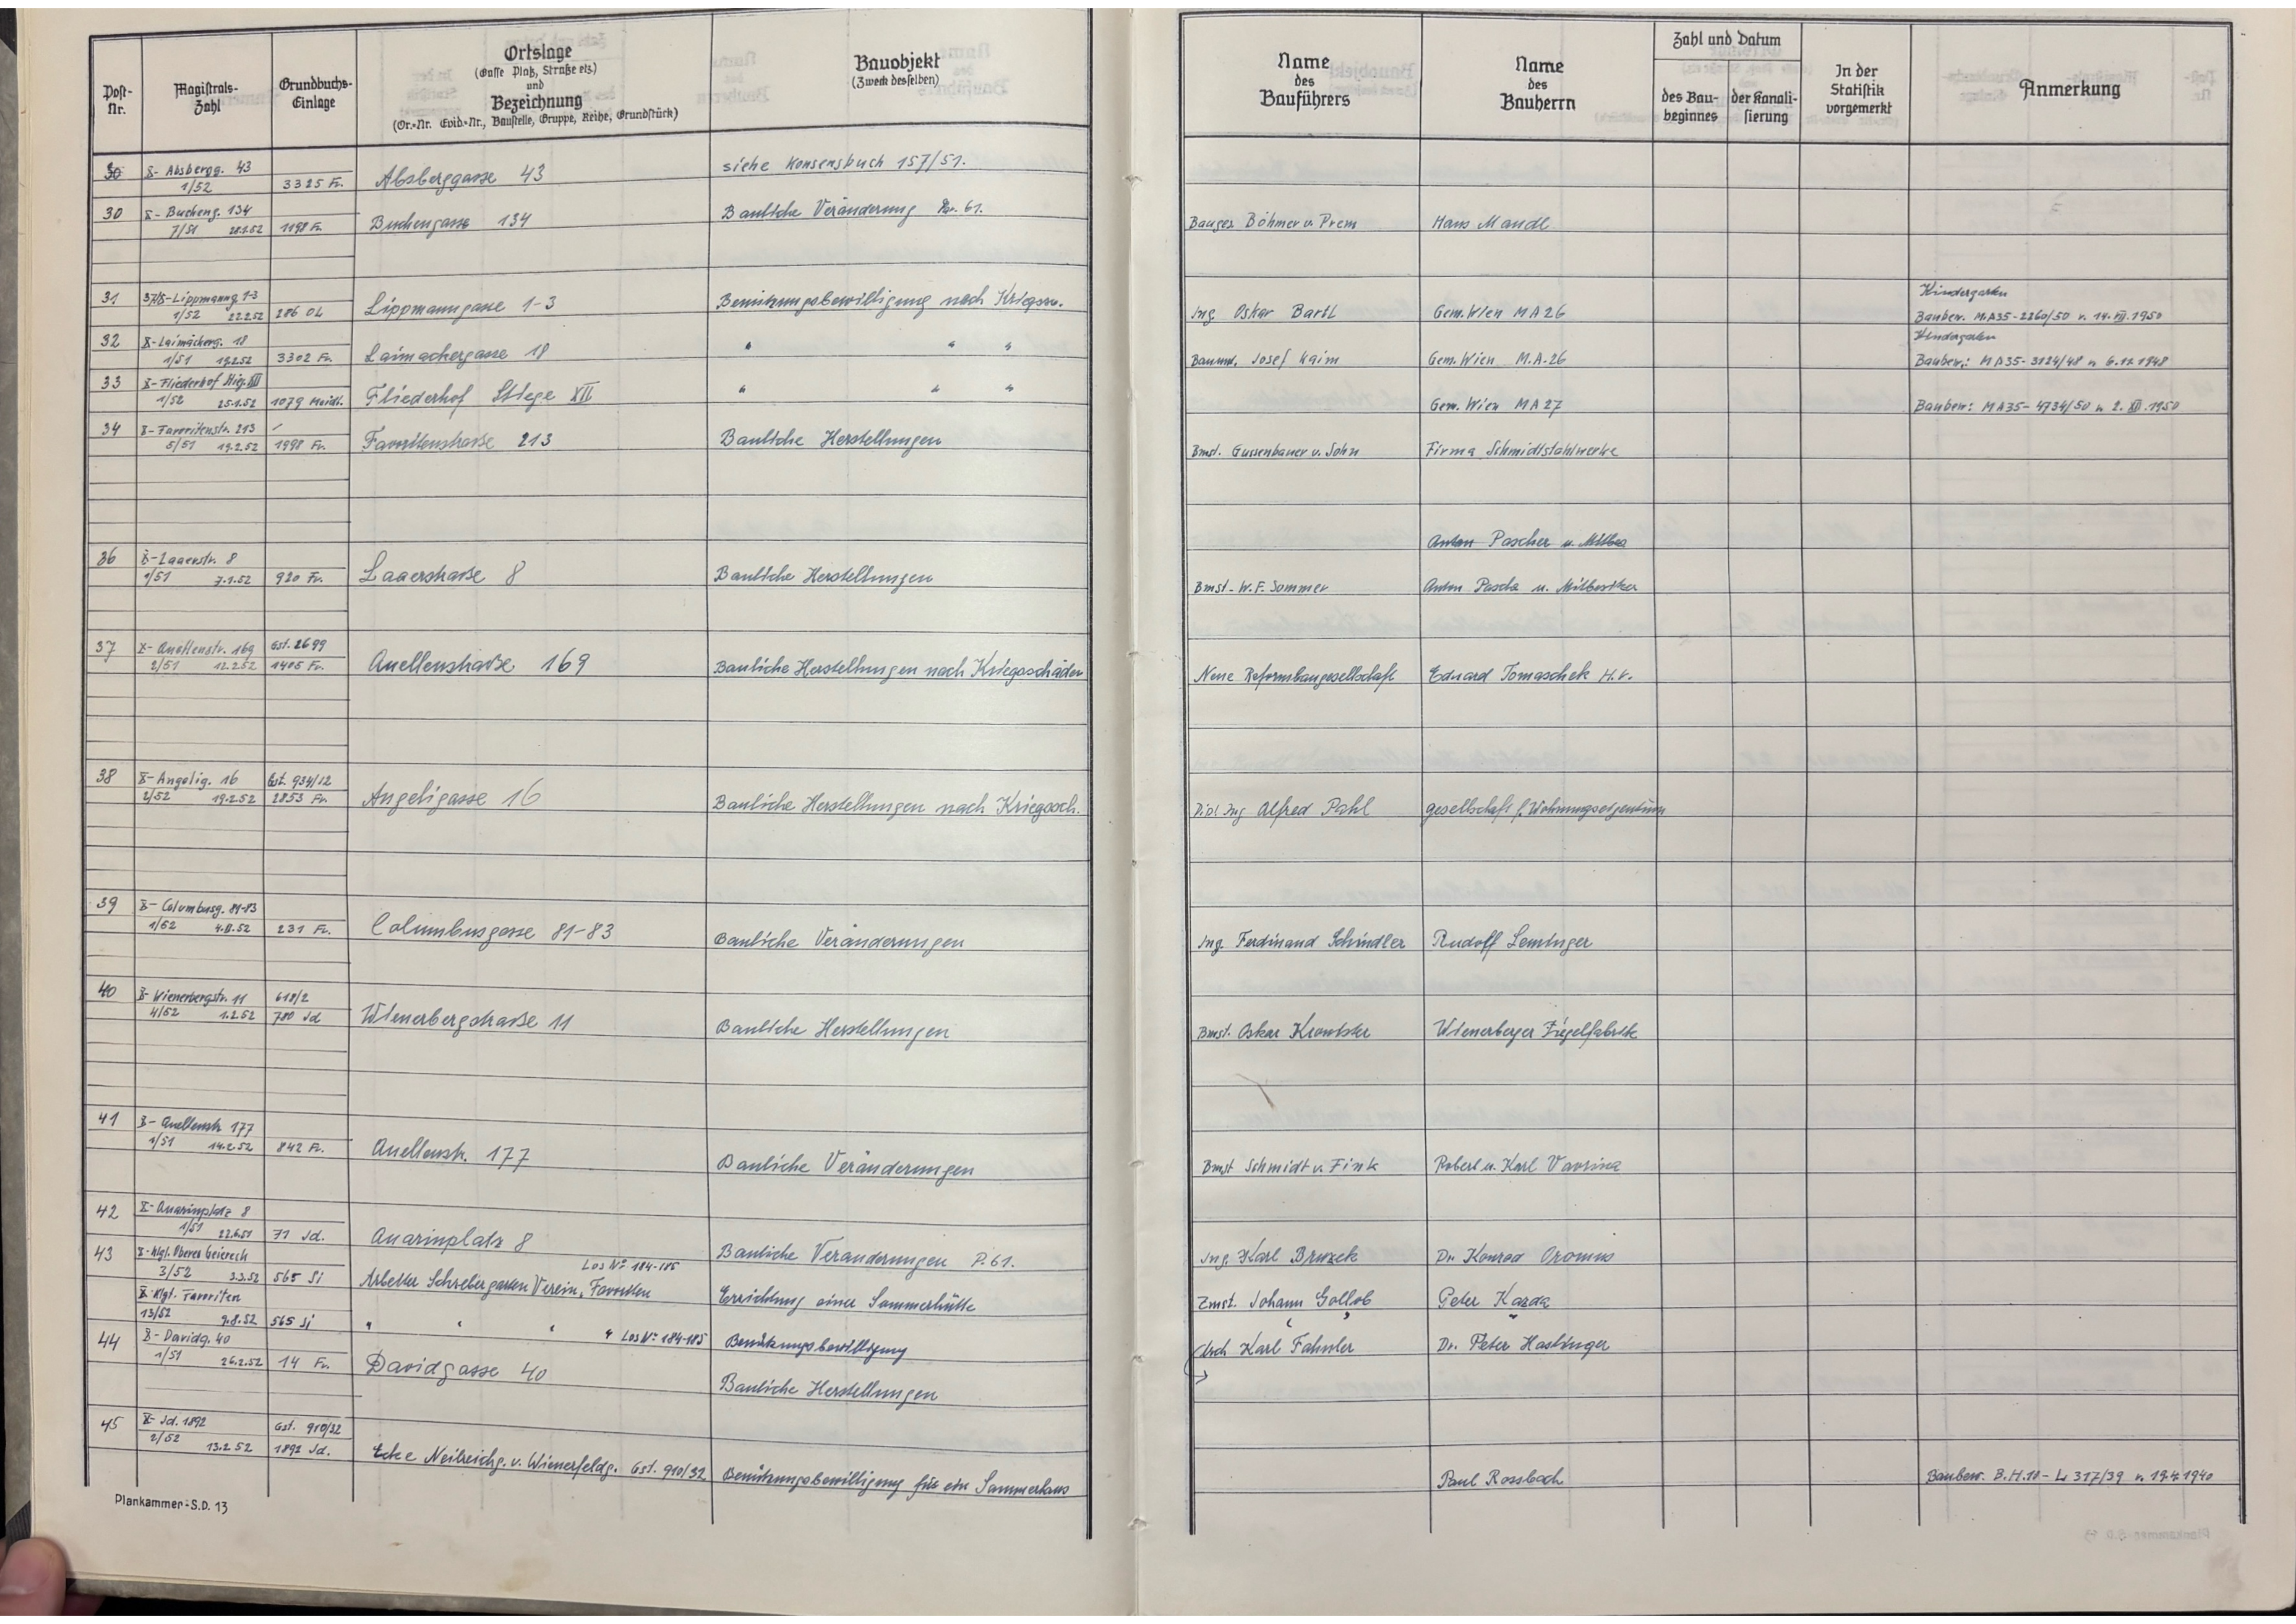 Post-Nr.
Magistrats-Zahl
Grundbuchs-Einlage
Ortslage
(Gasse Platz, Straße etz.)
und
Bezeichnung
(Or.-Nr. Evid.-Nr., Baustelle, Gruppe, Reihe, Grundstück)
Bauobjekt
(Zweck desselben)
Name des Bauführers
Name des Bauherrn
Zahl und Datum
des Baubeginnes
der Kanalisierung
In der Statistik vorgemerkt
Anmerkung
30 X- Absbergg. 43
1/52 3325 Fr. Absberggasse 43 siehe Konsensbuch 157/51.
30 X- Bucheng. 134
7/51 28.1.52 1198 Fr. Buchengasse 134 Bauliche Veränderung 61. Bauges. Böhmer u. Prem Hans Mandl
31 Lippmanng. 1-3 Kindergarten
1/52 22.2.52 286 OL Lippmanngasse 1-3 Benützungsbewilligung nach Kriegssch. Ing. Oskar Bartl Gem. Wien MA 26 Baubew. M.A35-2260/50 v. 14. VII. 1950
32 X-Laimäckerg. 18 Kindergarten
1/51 19.2.52 3302 Fr. Laimachergasse 18 " " " Baumst. Josef Kaim Gem. Wien M.A.26 Baubew.: MA35-3124/48 v. 6.12.1948
33 X-Fliederhof Stig. XII
1/52 25.1.52 1079 Meidl. Fliederhof Stiege XII " " " Gem. Wien MA27 Baubew: MA35-4734/50 v. 2. XII. 1950
34 X-Favoritenstr. 213
5/51 19.2.52 1998 Fr. Favoritenstraße 213 Bauliche Herstellungen Bmst. Gussenbauer u. Sohn Firma Schmidtstahlwerke
Anton Pascher u. Mitbes
36 X-Laaerstr. 8
1/51 7.1.52 920 Fr. Laaerstraße 8 Bauliche Herstellungen Bmst. W.F. Sommer Anton Pascha u. Mitbesitzer
37 X- Quellenstr. 169 Gst. 2699
2/51 12.2.52 1405 Fr. Quellenstraße 169 Bauliche Herstellungen nach Kriegsschäden Neue Reformbaugesellschaft Eduard Tomaschek H.V.
38 X-Angelig. 16 Gst. 934/12
2/52 19.2.52 2853 Fr. Angeligasse 16 Bauliche Herstellungen nach Kriegssch. Dipl Ing Alfred Pahl gesellschaft f. Wohnungseigentum
39 X- Columbusg. 81-83
1/52 4.II.52 231 Fr. Columbusgasse 81-83 Bauliche Veränderungen Ing. Ferdinand Schindler Rudolf Leminger
40 X- Wienerbergstr. 11 618/2
4/52 1.2.52 780 Jd Wienerbergstraße 11 Bauliche Herstellungen Bmst. Oskar Wienerberger Ziegelfabrik
41 X- Quellenstr. 177
1/51 14.2.52 842 Fr. Quellenstr. 177 Bauliche Veränderungen Bmst Schmidt u. Fink Robert u. Karl Vavrina
42 X- Quarinplatz 8
1/51 22.6.51 71 Jd. Quarinplatz 8 Bauliche Veränderungen P.61. Ing. Karl Bruzek Dr. Konrad Oromus
43 X-Klgt. Oberes Geiereck Los Nº 184-185
3/52 3.3.52 565 Si Arbeiter Schrebergarten Verein, Favoriten Errichtung einer Sommerhütte Zmst. Johann Gollob Peter Kazda
X. Klgt. Favoriten
13/52 9.8.52 565 Si " " " " Los Nº 184-185 Benützungsbewilligung " "
44 X- Davidg. 40
1/51 26.2.52 14 Fr. Davidgasse 40 Bauliche Herstellungen Arch Karl Fahnler Dr. Peter Haslinger
45 X- Jd. 1892 Gst. 910/32
2/52 13.2.52 1892 Jd. Ecke Neilreichg. u. Wienerfeldg. Gst. 910/32 Benützungsbewilligung für ein Sommerhaus Paul Rossbach Baubew. B.H.10- L 317/39 v. 19.4.1940
Plankammer-S.D. 13